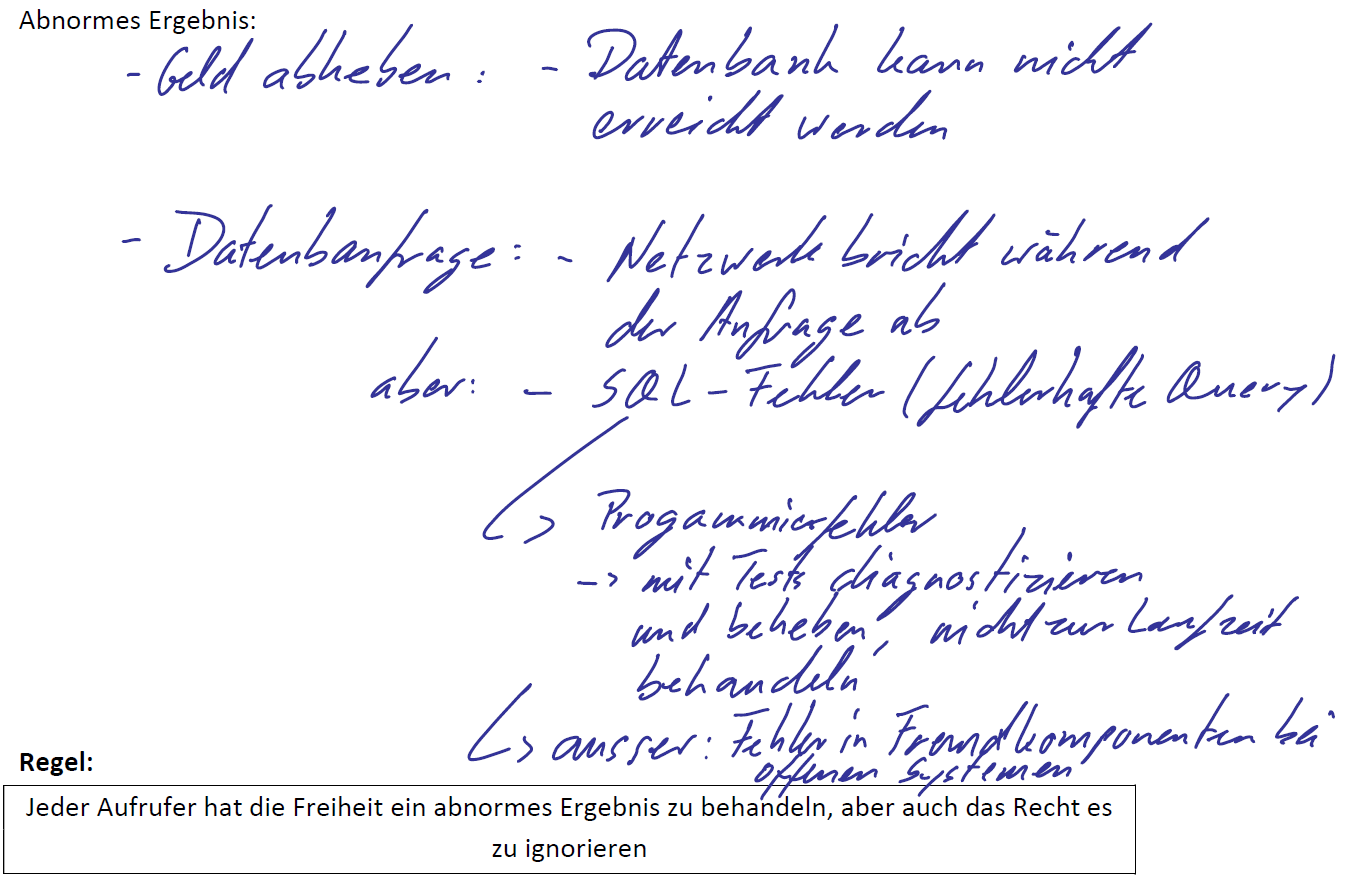 Abnormes Ergebnis:
- Geld abheben: - Datenbank kann nicht
erreicht werden
- Datenbanfrage: - Netzwerk bricht während
der Anfrage ab
aber: - SQL-Fehler (fehlerhafte Query)
↳ Progammierfehler
-> mit Tests diagnostizieren
und beheben, nicht zur Laufzeit
behandeln
↳ ausser: Fehler in Fremdkomponenten bei
offenen Systemen
Regel:
Jeder Aufrufer hat die Freiheit ein abnormes Ergebnis zu behandeln, aber auch das Recht es
zu ignorieren